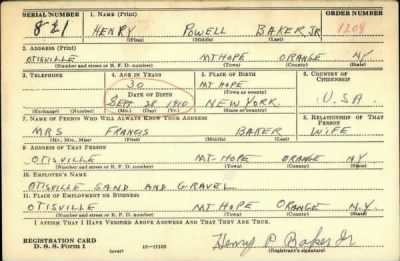 SERIAL NUMBER 1. NAME (Print) ORDER NUMBER
821 HENRY POWELL BAKER JR 1209
(First) (Middle) (Last)
2. ADDRESS (Print)
OTISVILLE MT HOPE ORANGE NY
(Number and street or R. F. D. number) (Town) (County) (State)
3. TELEPHONE 4. AGE IN YEARS 5. PLACE OF BIRTH 6. COUNTRY OF CITIZENSHIP
30 MT HOPE
DATE OF BIRTH (Town or county)
SEPT. 28 1910 NEW YORK U.S.A.
(Exchange) (Number) (Mo.) (Day) (Yr.) (State or country)
7. NAME OF PERSON WHO WILL ALWAYS KNOW YOUR ADDRESS 8. RELATIONSHIP OF THAT PERSON
MRS FRANCIS BAKER WIFE
(Mr., Mrs., Miss) (First) (Middle) (Last)
9. ADDRESS OF THAT PERSON
OTISVILLE MT-HOPE ORANGE NY
(Number and street or R. F. D. number) (Town) (County) (State)
10. EMPLOYER'S NAME
OTISVILLE SAND AND GRAVEL
11. PLACE OF EMPLOYMENT OR BUSINESS
OTISVILLE MT HOPE ORANGE N.Y
(Number and street or R. F. D. number) (Town) (County) (State)
I AFFIRM THAT I HAVE VERIFIED ABOVE ANSWERS AND THAT THEY ARE TRUE.
REGISTRATION CARD
D. S. S. Form 1 (over) 16—17105 Henry P. Baker Jr
(Registrant's signature)